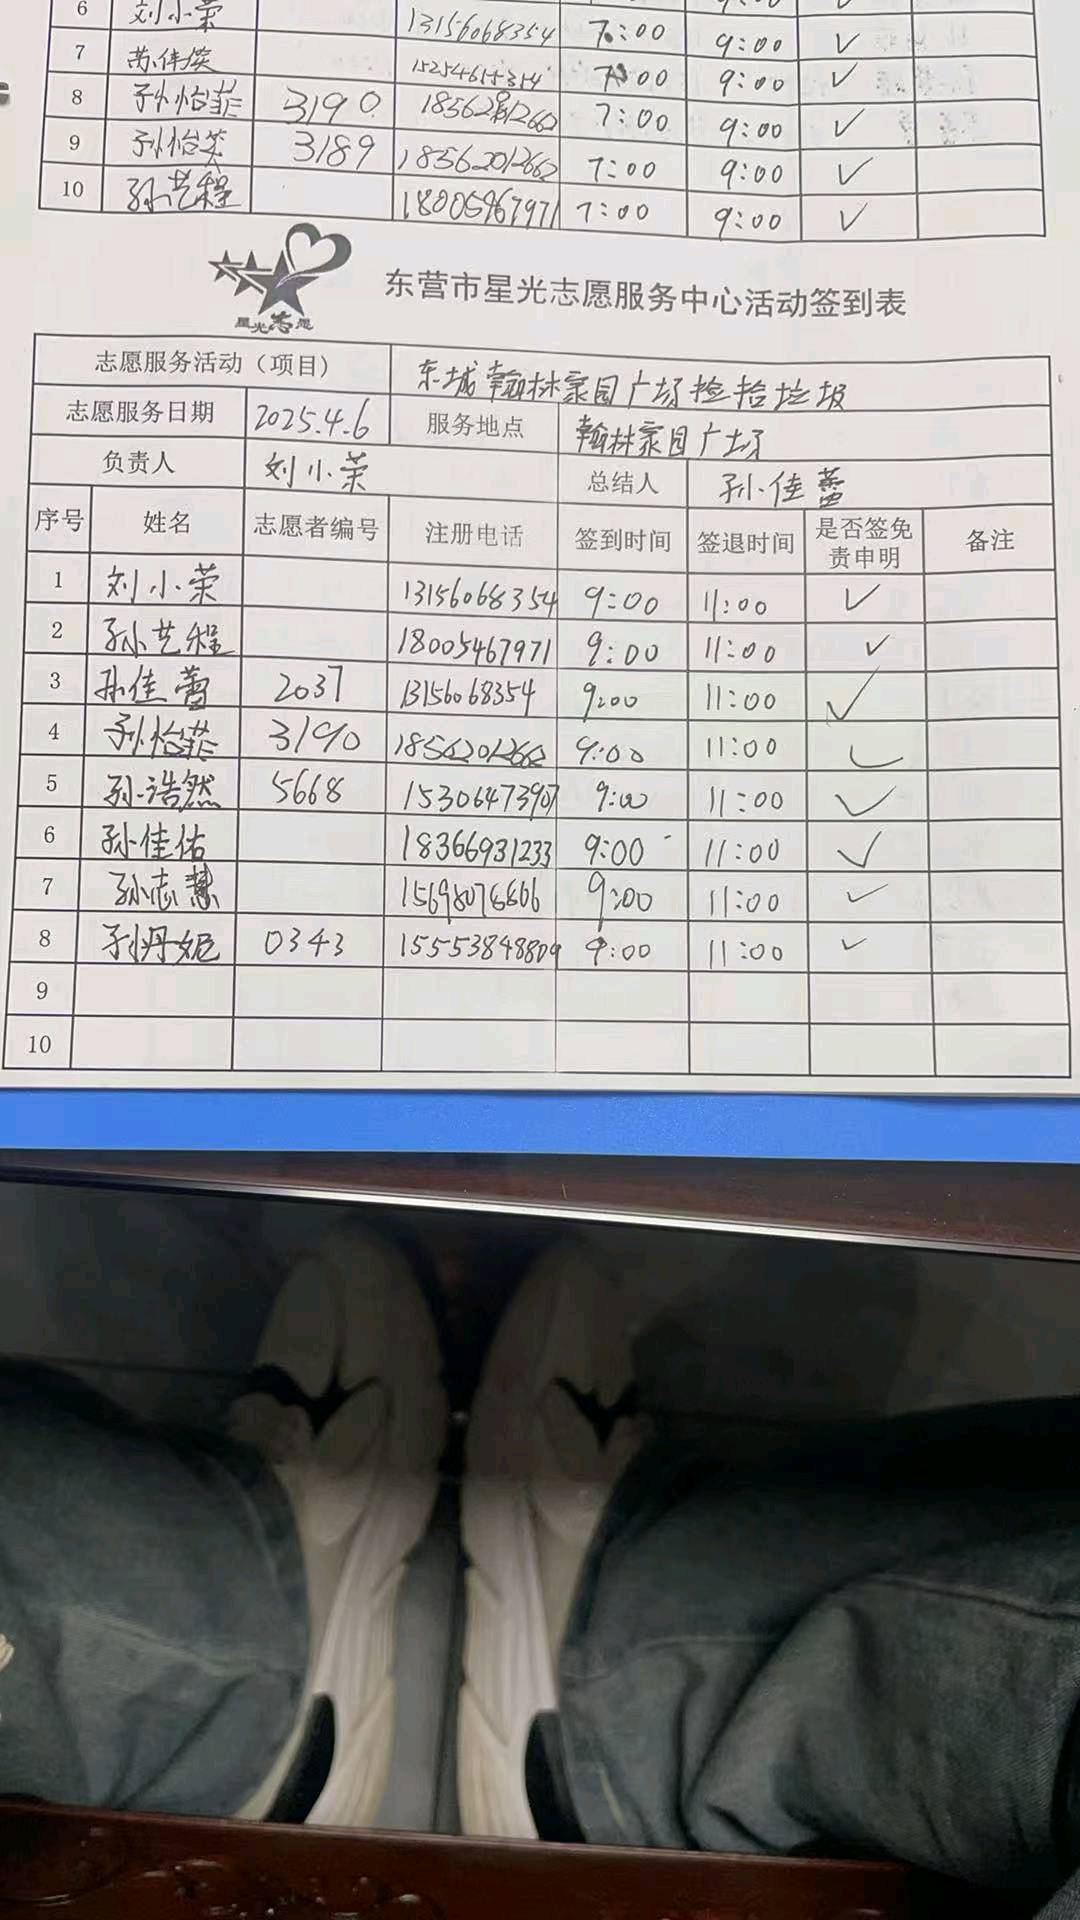 6 刘小荣 13156068354 7:00 9:00 ✓
7 7:00 9:00 ✓
8 孙怡菲 3190 7:00 9:00 ✓
9 孙怡笑 3189 18562012662 7:00 9:00 ✓
10 孙艺程 18005467971 7:00 9:00 ✓
星光志愿
东营市星光志愿服务中心活动签到表
志愿服务活动（项目） 东城翰林家园广场捡拾垃圾
志愿服务日期 2025.4.6 服务地点 翰林家园广场
负责人 刘小荣 总结人 孙佳蕾
序号 姓名 志愿者编号 注册电话 签到时间 签退时间 是否签免责申明 备注
1 刘小荣 13156068354 9:00 11:00 ✓
2 孙艺程 18005467971 9:00 11:00 ✓
3 孙佳蕾 2037 13156068354 9:00 11:00 ✓
4 孙怡菲 3190 18562012662 9:00 11:00 ✓
5 孙浩然 5668 15306473907 9:00 11:00 ✓
6 孙佳佑 18366931233 9:00 11:00 ✓
7 孙志慧 9:00 11:00 ✓
8 孙丹妮 0343 15553848809 9:00 11:00 ✓
9
10